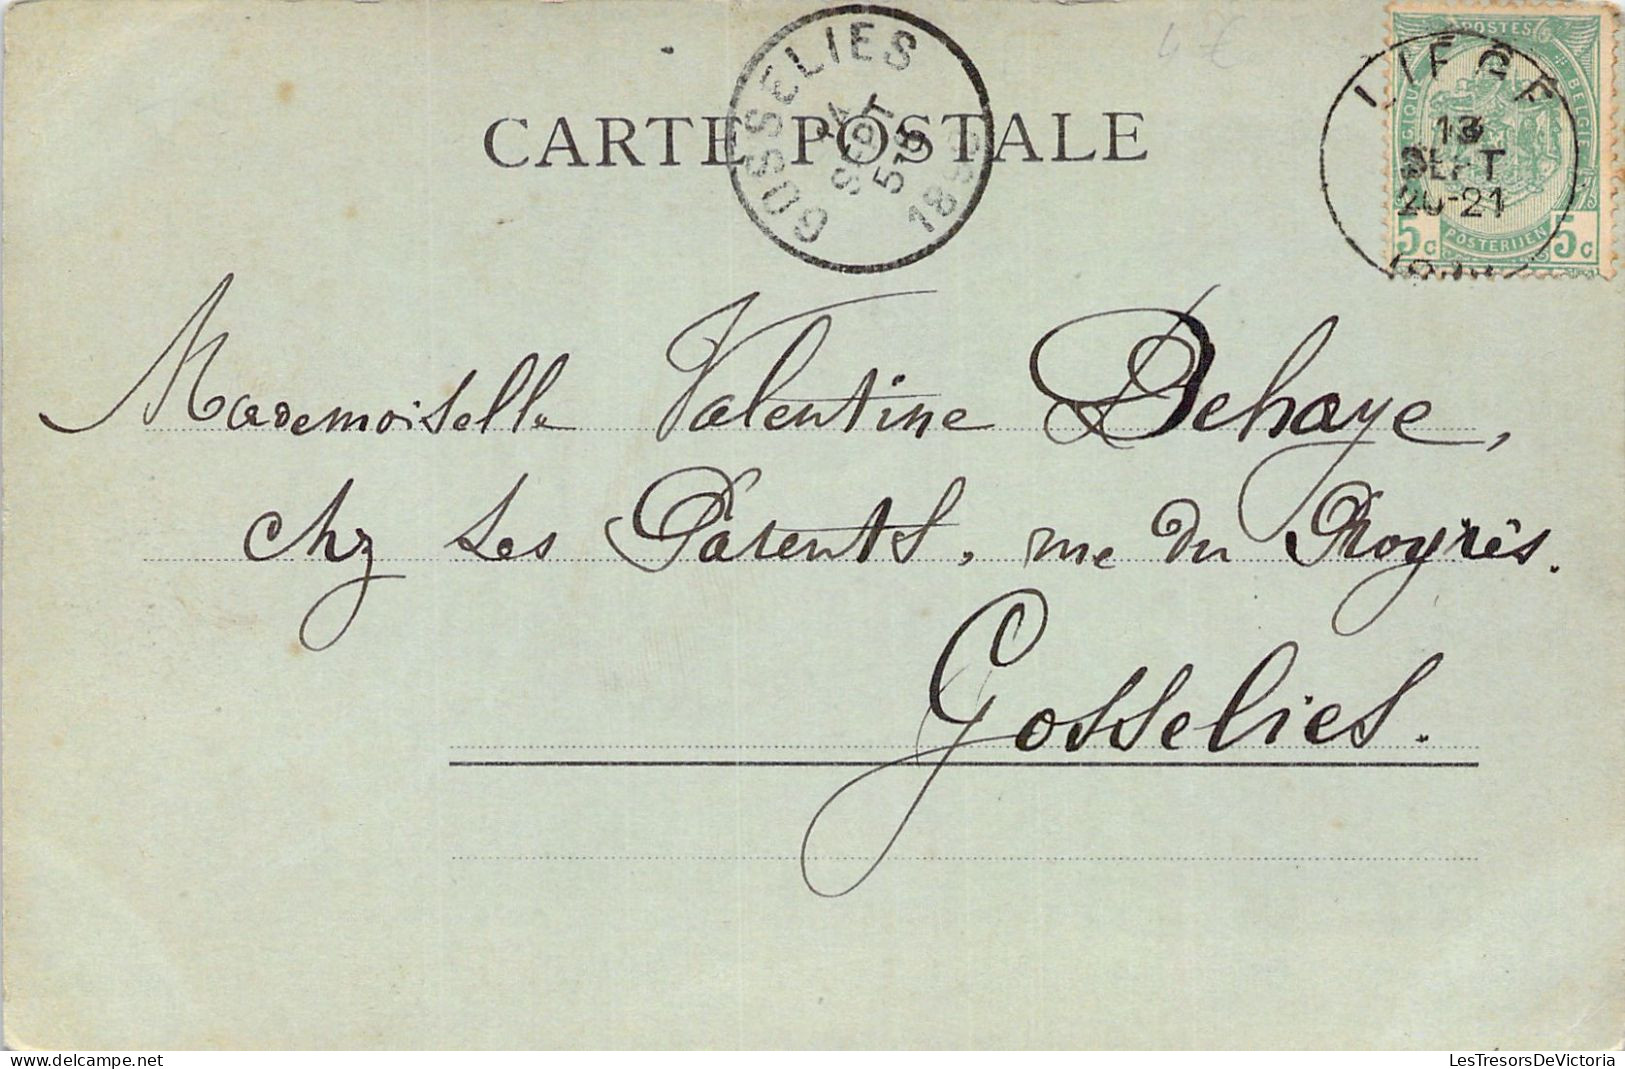 4 €
CARTE POSTALE
GOSSELIES
14
SEPT
5-6
LIEGE
13
SEPT
20-21
POSTES
BELGIQUE
BELGIE
5c
POSTERIJEN
5c
Mademoiselle Valentine Dehaye,
chz ses Parents, rue du Progrès.
Gosselies.
LesTresorsDeVictoria.com
LesTresorsDeVictoria